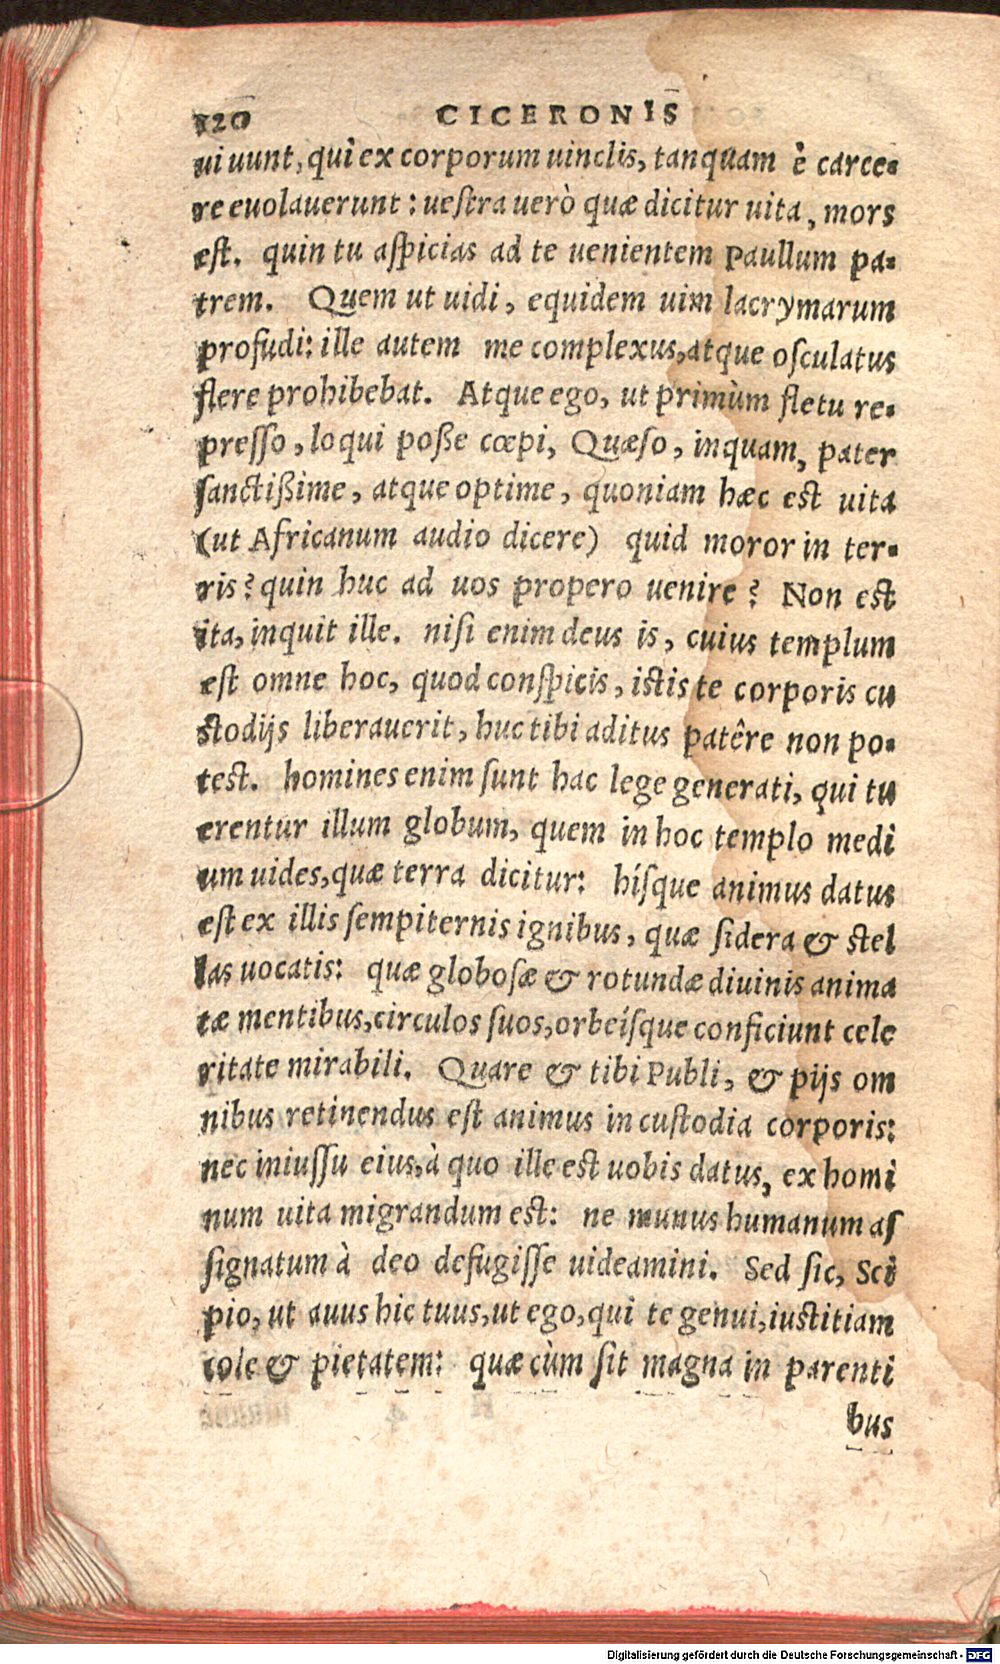 120 CICERONIS
uiuunt, qui ex corporum uinclis, tanquam è carce-
re euolauerunt: uestra uerò quæ dicitur uita, mors
est. quin tu aspicias ad te uenientem Paullum pa-
trem. Quem ut uidi, equidem uim lacrymarum
profudi: ille autem me complexus, atque osculatus
flere prohibebat. Atque ego, ut primùm fletu re-
presso, loqui poße cœpi, Quæso, inquam, pater
sanctißime, atque optime, quoniam hæc est uita
(ut Africanum audio dicere) quid moror in ter-
ris? quin huc ad uos propero uenire? Non est
ita, inquit ille. nisi enim deus is, cuius templum
est omne hoc, quod conspicis, istis te corporis cu
stodijs liberauerit, huc tibi aditus patêre non po-
test. homines enim sunt hac lege generati, qui tu
erentur illum globum, quem in hoc templo medi
um uides, quæ terra dicitur: hísque animus datus
est ex illis sempiternis ignibus, quæ sidera & stel
las uocatis: quæ globosæ & rotundæ diuinis anima
tæ mentibus, circulos suos, orbeísque conficiunt cele
ritate mirabili. Quare & tibi Publi, & pijs om
nibus retinendus est animus in custodia corporis:
nec iniussu eius, à quo ille est uobis datus, ex homi
num uita migrandum est: ne munus humanum as
signatum à deo defugisse uideamini. Sed sic, Sci
pio, ut auus hic tuus, ut ego, qui te genui, iustitiam
cole & pietatem: quæ cùm sit magna in parenti
bus
Digitalisierung gefördert durch die Deutsche Forschungsgemeinschaft - DFG